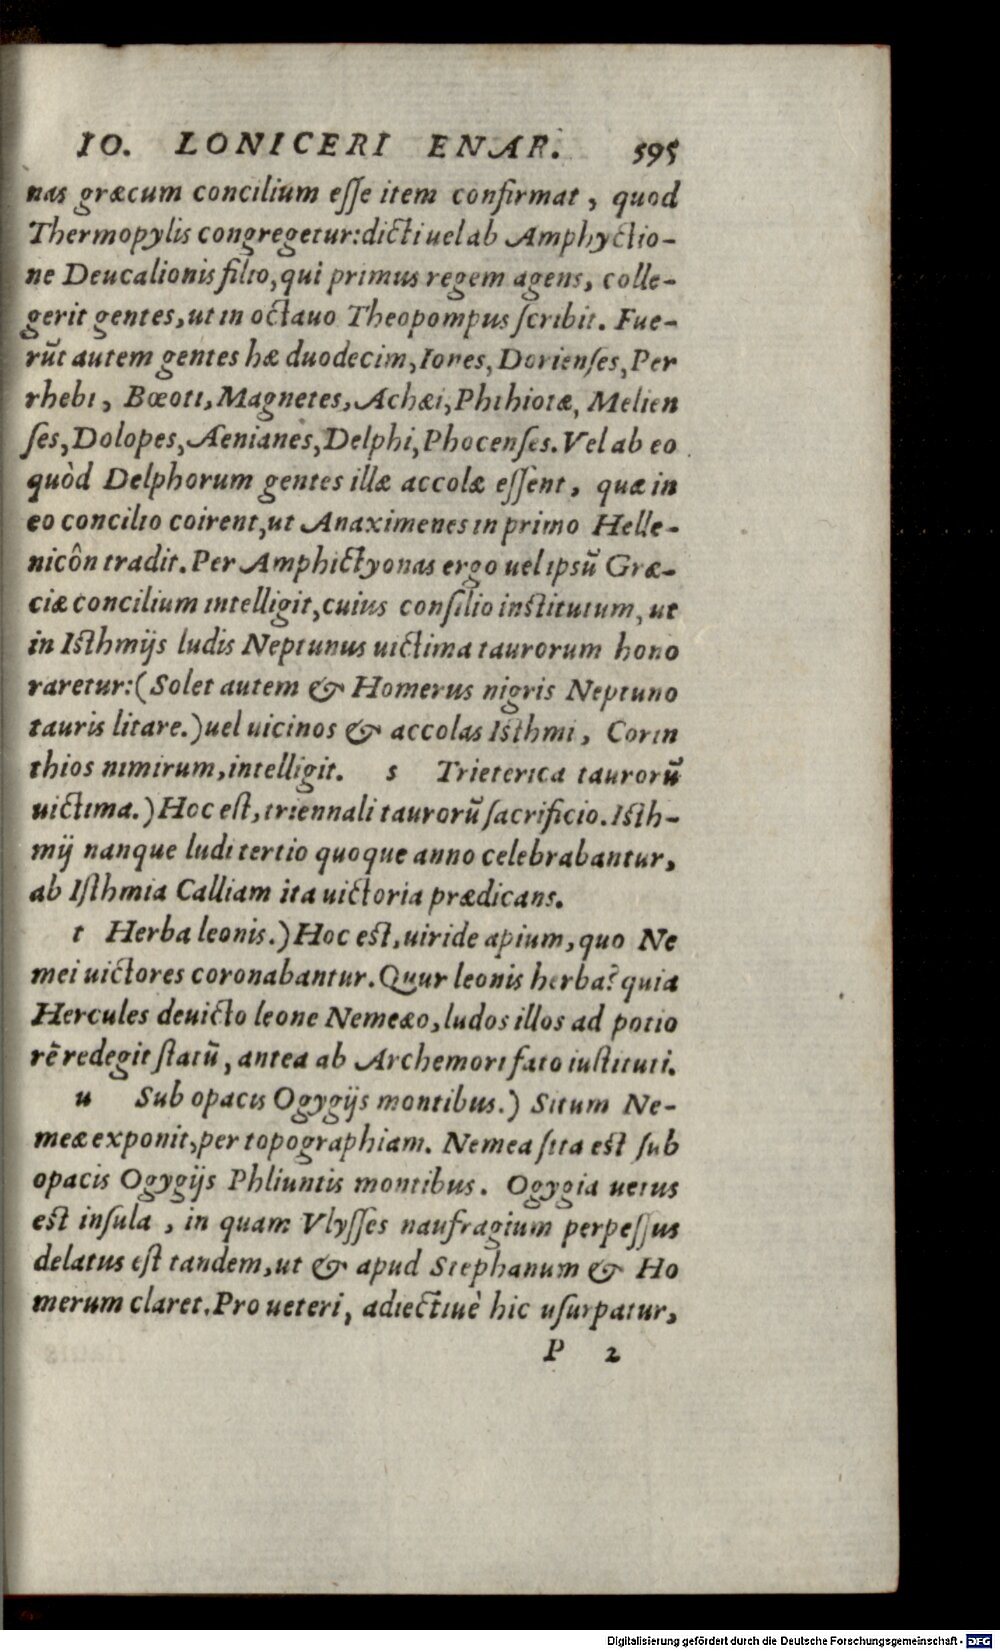 IO. LONICERI ENAR. 595
nas græcum concilium esse item confirmat, quod
Thermopylis congregetur: dicti uel ab Amphyctio-
ne Deucalionis filio, qui primus regem agens, colle-
gerit gentes, ut in octauo Theopompus scribit. Fue-
rūt autem gentes hæ duodecim, Iones, Dorienses, Per
rhebi, Bœoti, Magnetes, Achæi, Phthiotæ, Melien
ses, Dolopes, Aenianes, Delphi, Phocenses. Vel ab eo
quòd Delphorum gentes illæ accolæ essent, quæ in
eo concilio coirent, ut Anaximenes in primo Helle-
nicôn tradit. Per Amphictyonas ergo uel ipsū Græ-
ciæ concilium intelligit, cuius consilio institutum, ut
in Isthmijs ludis Neptunus uictima taurorum hono
raretur: (Solet autem & Homerus nigris Neptuno
tauris litare.) uel uicinos & accolas Isthmi, Corin
thios nimirum, intelligit. s Trieterica taurorū
uictima.) Hoc est, triennali taurorū sacrificio. Isth-
mij nanque ludi tertio quoque anno celebrabantur,
ab Isthmia Calliam ita uictoria prædicans.
t Herba leonis.) Hoc est, uiride apium, quo Ne
mei uictores coronabantur. Quur leonis herba? quia
Hercules deuicto leone Nemeæo, ludos illos ad potio
rē redegit statū, antea ab Archemori fato iustituti.
u Sub opacis Ogygijs montibus.) Situm Ne-
meæ exponit, per topographiam. Nemea sita est sub
opacis Ogygijs Phliuntis montibus. Ogygia uetus
est insula, in quam Vlysses naufragium perpessus
delatus est tandem, ut & apud Stephanum & Ho
merum claret. Pro ueteri, adiectiuè hic usurpatur,
P 2
Digitalisierung gefördert durch die Deutsche Forschungsgemeinschaft - DFG